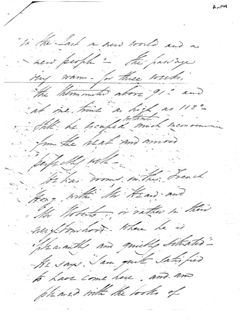 in the East a new world and a
new people — The passage
very warm — for three weeks
the thermometer above 91° and
at one time as high as 112°
Still he escaped much
from the heat and arrived
perfectly well —
We have rooms in the French
with the and
the Hotels, is rather in their
neighborhood where he is
pleasantly and quietly situated —
He says "I am quite satisfied
to have come here, and am
pleased with the looks of